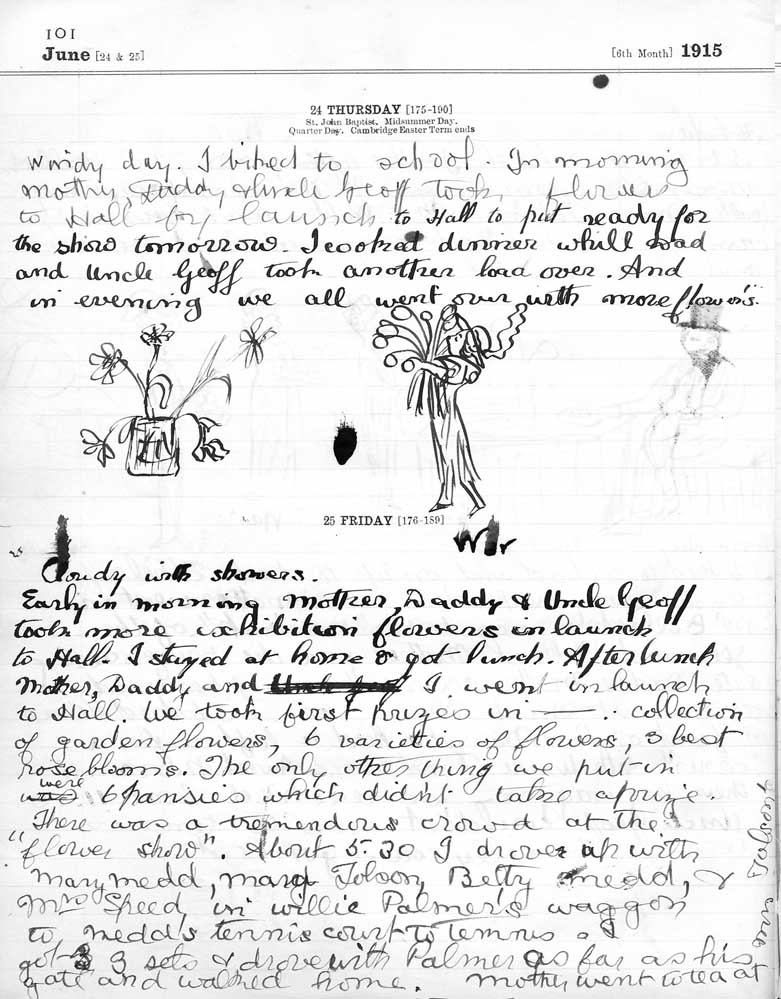 101
June [24 & 25] [6th Month] 1915
24 THURSDAY [175-190]
St. John Baptist. Midsummer Day.
Quarter Day. Cambridge Easter Term ends
Windy day. I biked to school. In morning
Mother, Daddy & Uncle Geoff took flowers
to Hall by launch to Hall to put ready for
the show tomorrow. I cooked dinner whill Dad
and Uncle Geoff took another load over. And
in evening we all went over with more flowers.
25 FRIDAY [176-189]
Cloudy with showers.
Early in morning Mother, Daddy & Uncle Geoff
took more exhibition flowers in launch
to Hall. I stayed at home & got lunch. After lunch
Mother, Daddy and Uncle Geoff I went in launch
to Hall. We took first prizes in —. collection
of garden flowers, 6 varieties of flowers, 3 best
rose blooms. The only other thing we put in
was were 6 pansies which didn't take a prize.
There was a tremendous crowd at the
"flower show". About 5.30 I drove up with
Mary Medd, Marg Tolson, Betty Medd, &
Mrs Speed, in Willie Palmer's waggon
to Medd's tennis court to tennis. I
got 3 sets & drove with Palmer as far as his
gate and walked home. Mother went to tea at
Mrs Tolson's